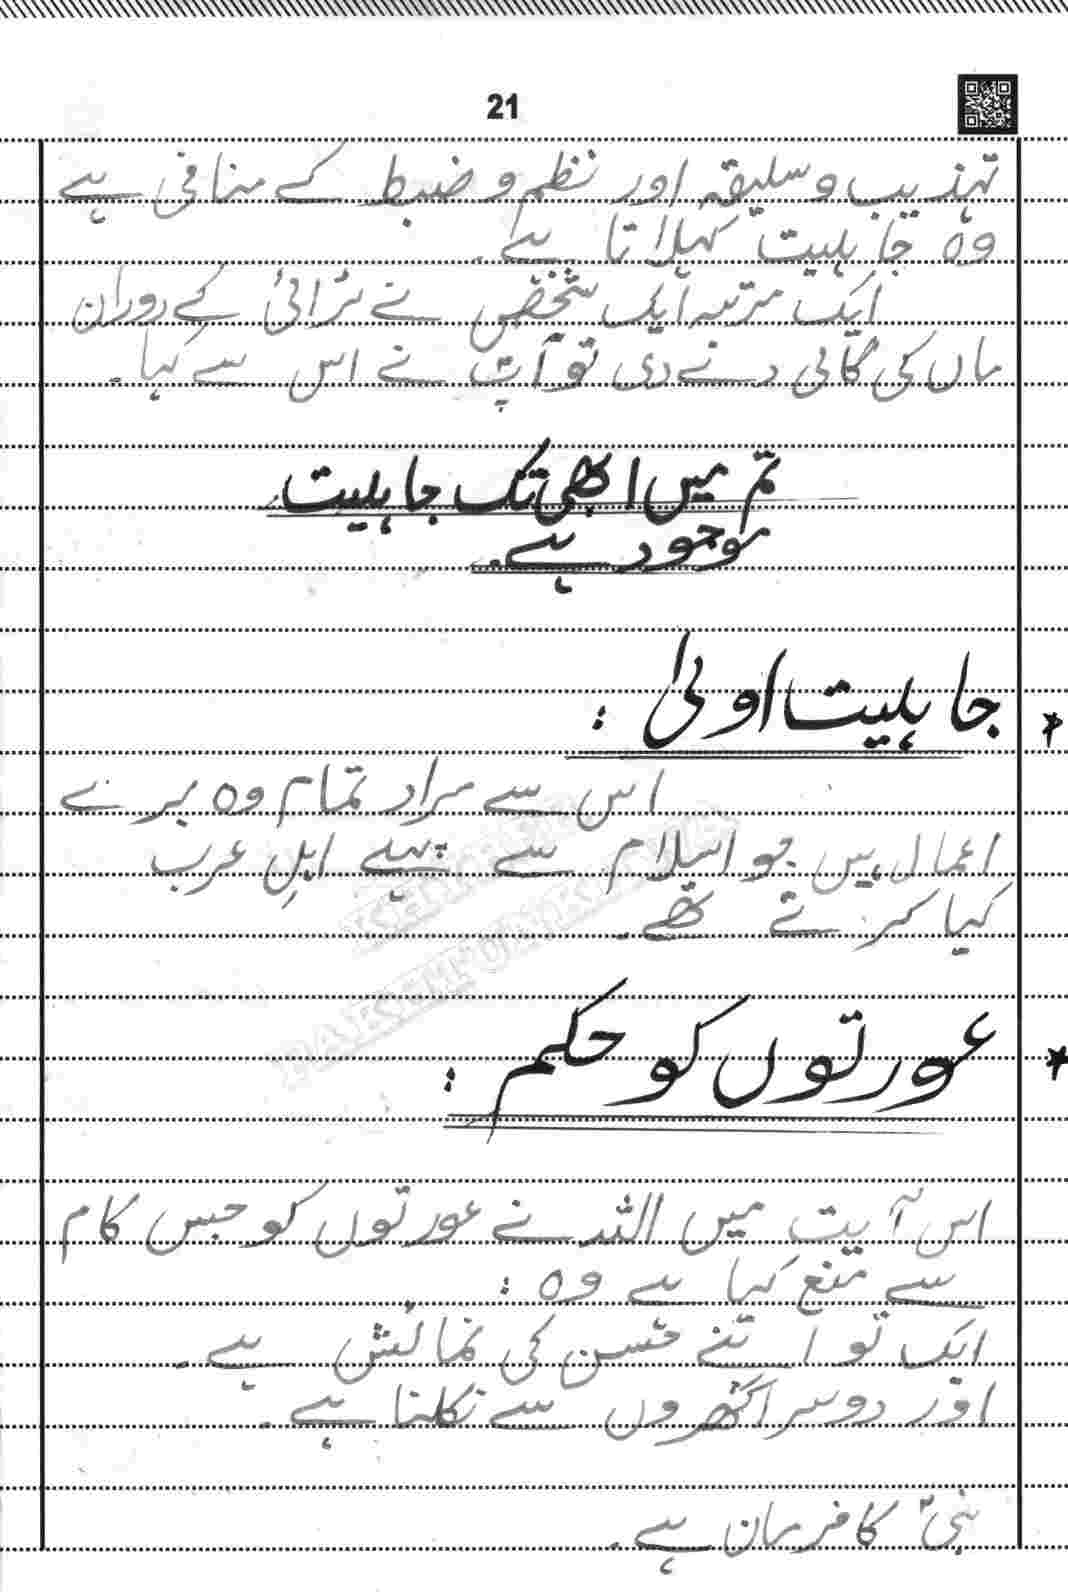 21
تہذیب و سلیقہ اور نظم و ضبط کے منافی ہے
وہ جاہلیت کہلاتا ہے۔
ایک مرتبہ ایک شخص نے لڑائی کے دوران
ماں کی گالی دے دی تو آپؐ نے اس سے کہا۔
تم میں ابھی تک جاہلیت
موجود ہے۔
* جاہلیت اولیٰ :
اس سے مراد تمام وہ برے
اعمال ہیں جو اسلام سے پہلے اہلِ عرب
کیا کرتے تھے۔
* عورتوں کو حکم :
اس آیت میں اللہ نے عورتوں کو جس کام
سے منع کیا ہے وہ :
ایک تو اپنے حسن کی نمائش ہے۔
اور دوسرا گھروں سے نکلنا ہے۔
نبیؐ کا فرمان ہے۔
KHYBER
PAKHTUNKHWA